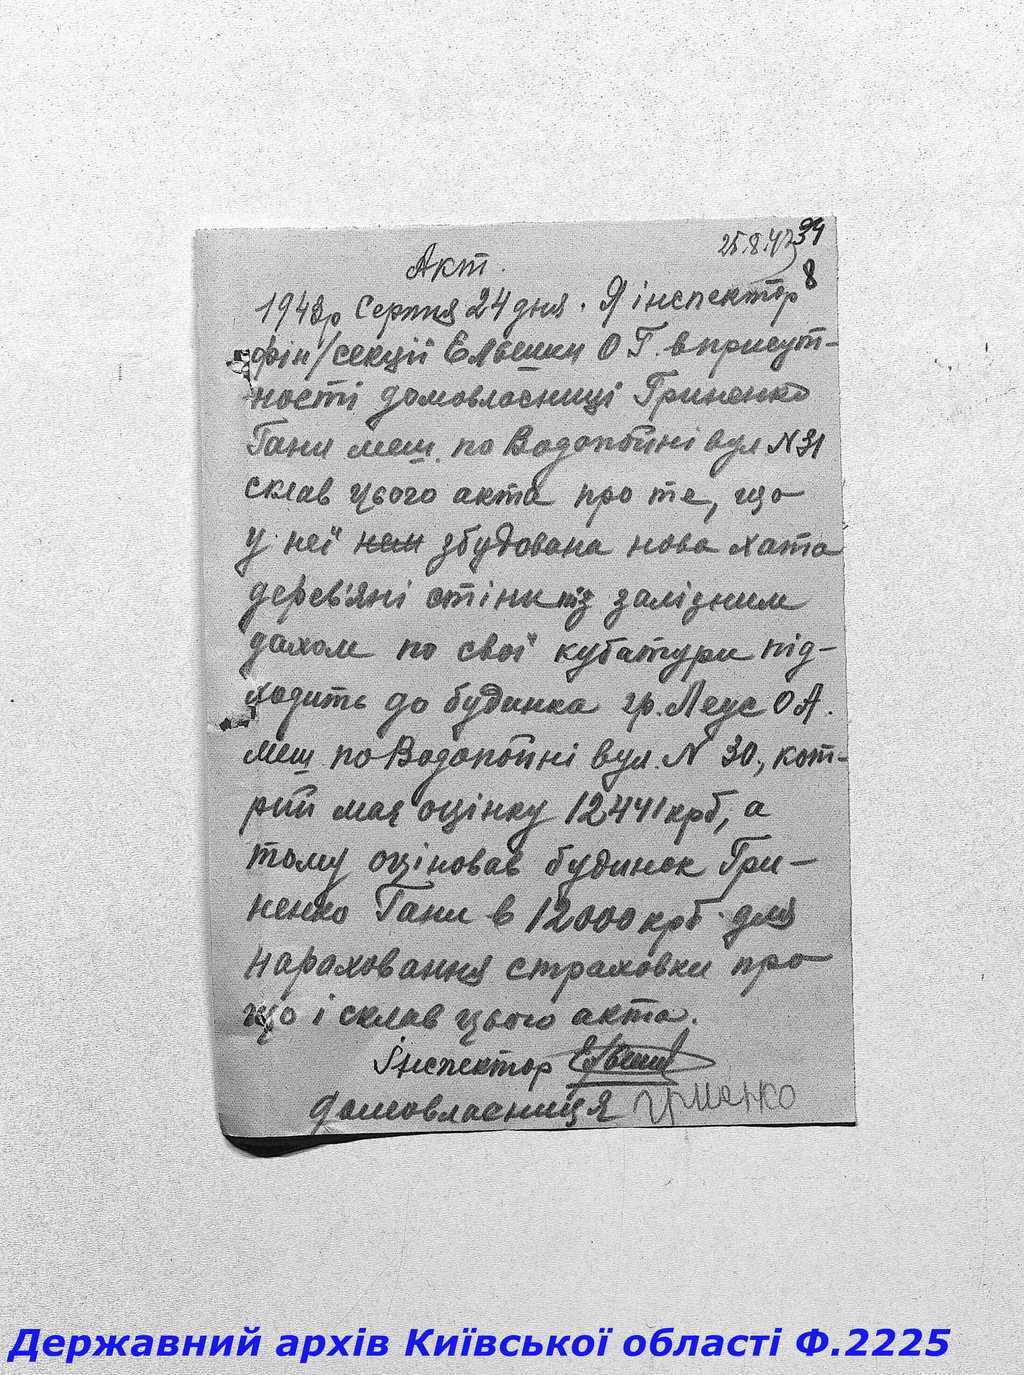 25.8.43 34
8
Акт.
1943р Серпня 24 дня. Я інспектор
фін/секції О Г. в присут-
ності домовласниці Гриненко
Гани меш. по Водопойні вул N 31
склав цього акта про те, що
у неї нем збудована нова хата
дерев'яні стінки під залізним
дахом по свої кубатури під-
ходить до будинка гр. Леус О А.
меш. по Водопойні вул. N 30, кот-
рий має оцінку 12441 крб, а
тому оціновав будинок Гри-
ненко Гани в 12000 крб для
нараховання страховки про
що і склав цього акта.
Інспектор
домовласниця Гриненко
Державний архів Київської області Ф.2225